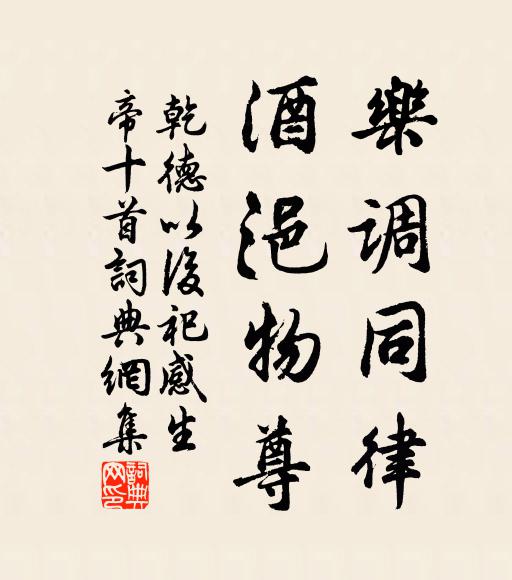 樂调同律
酒浥物尊
乾德以後祀感生
帝十首詞典網集
詞典
网印